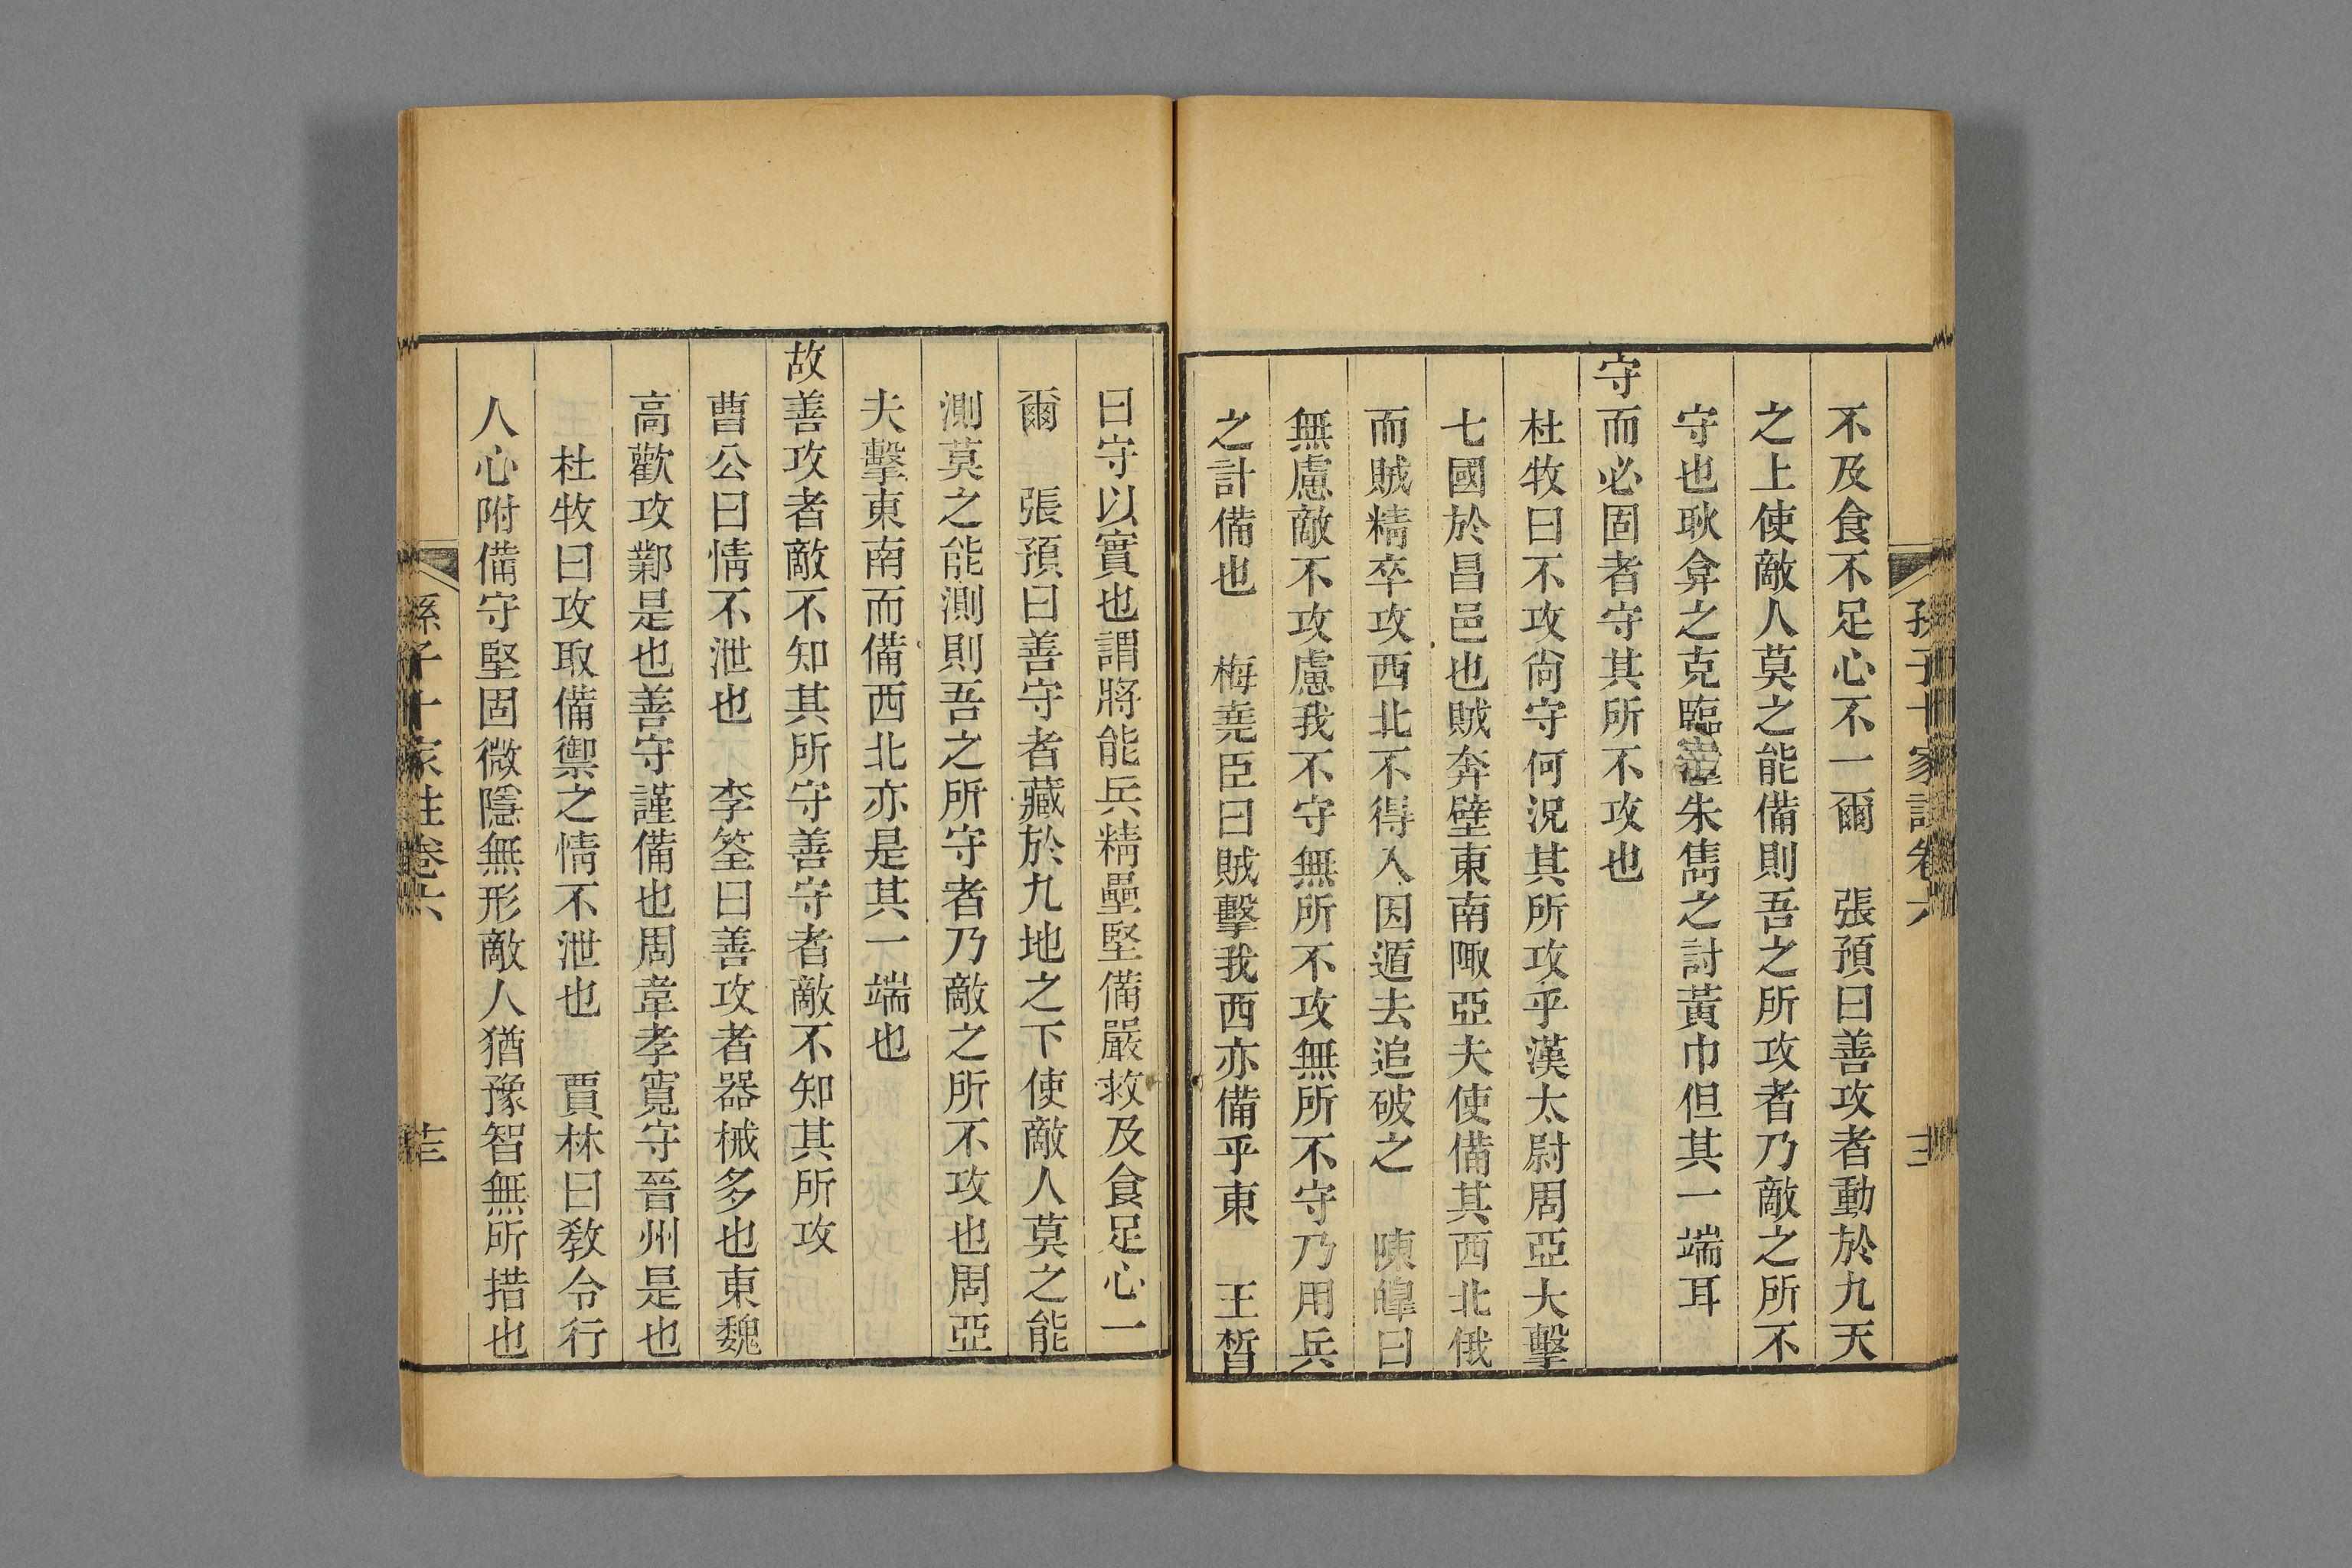 孫子十家註卷六 三
不及食不足心不一爾 張預曰善攻者動於九天
之上使敵人莫之能備則吾之所攻者乃敵之所不
守也耿弇之克臨淄朱儁之討黃巾但其一端耳
守而必固者守其所不攻也
杜牧曰不攻尙守何況其所攻乎漢太尉周亞夫擊
七國於昌邑也賊奔壁東南陬亞夫使備其西北俄
而賊精卒攻西北不得入因遁去追破之 陳皥曰
無慮敵不攻慮我不守無所不攻無所不守乃用兵
之計備也 梅堯臣曰賊擊我西亦備乎東 王晳
曰守以實也謂將能兵精壘堅備嚴救及食足心一
爾 張預曰善守者藏於九地之下使敵人莫之能
測莫之能測則吾之所守者乃敵之所不攻也周亞
夫擊東南而備西北亦是其一端也
故善攻者敵不知其所守善守者敵不知其所攻
曹公曰情不泄也 李筌曰善攻者器械多也東魏
高歡攻鄴是也善守謹備也周韋孝寬守晉州是也
杜牧曰攻取備禦之情不泄也 賈林曰敎令行
人心附備守堅固微隱無形敵人猶豫智無所措也
孫子十家註卷六